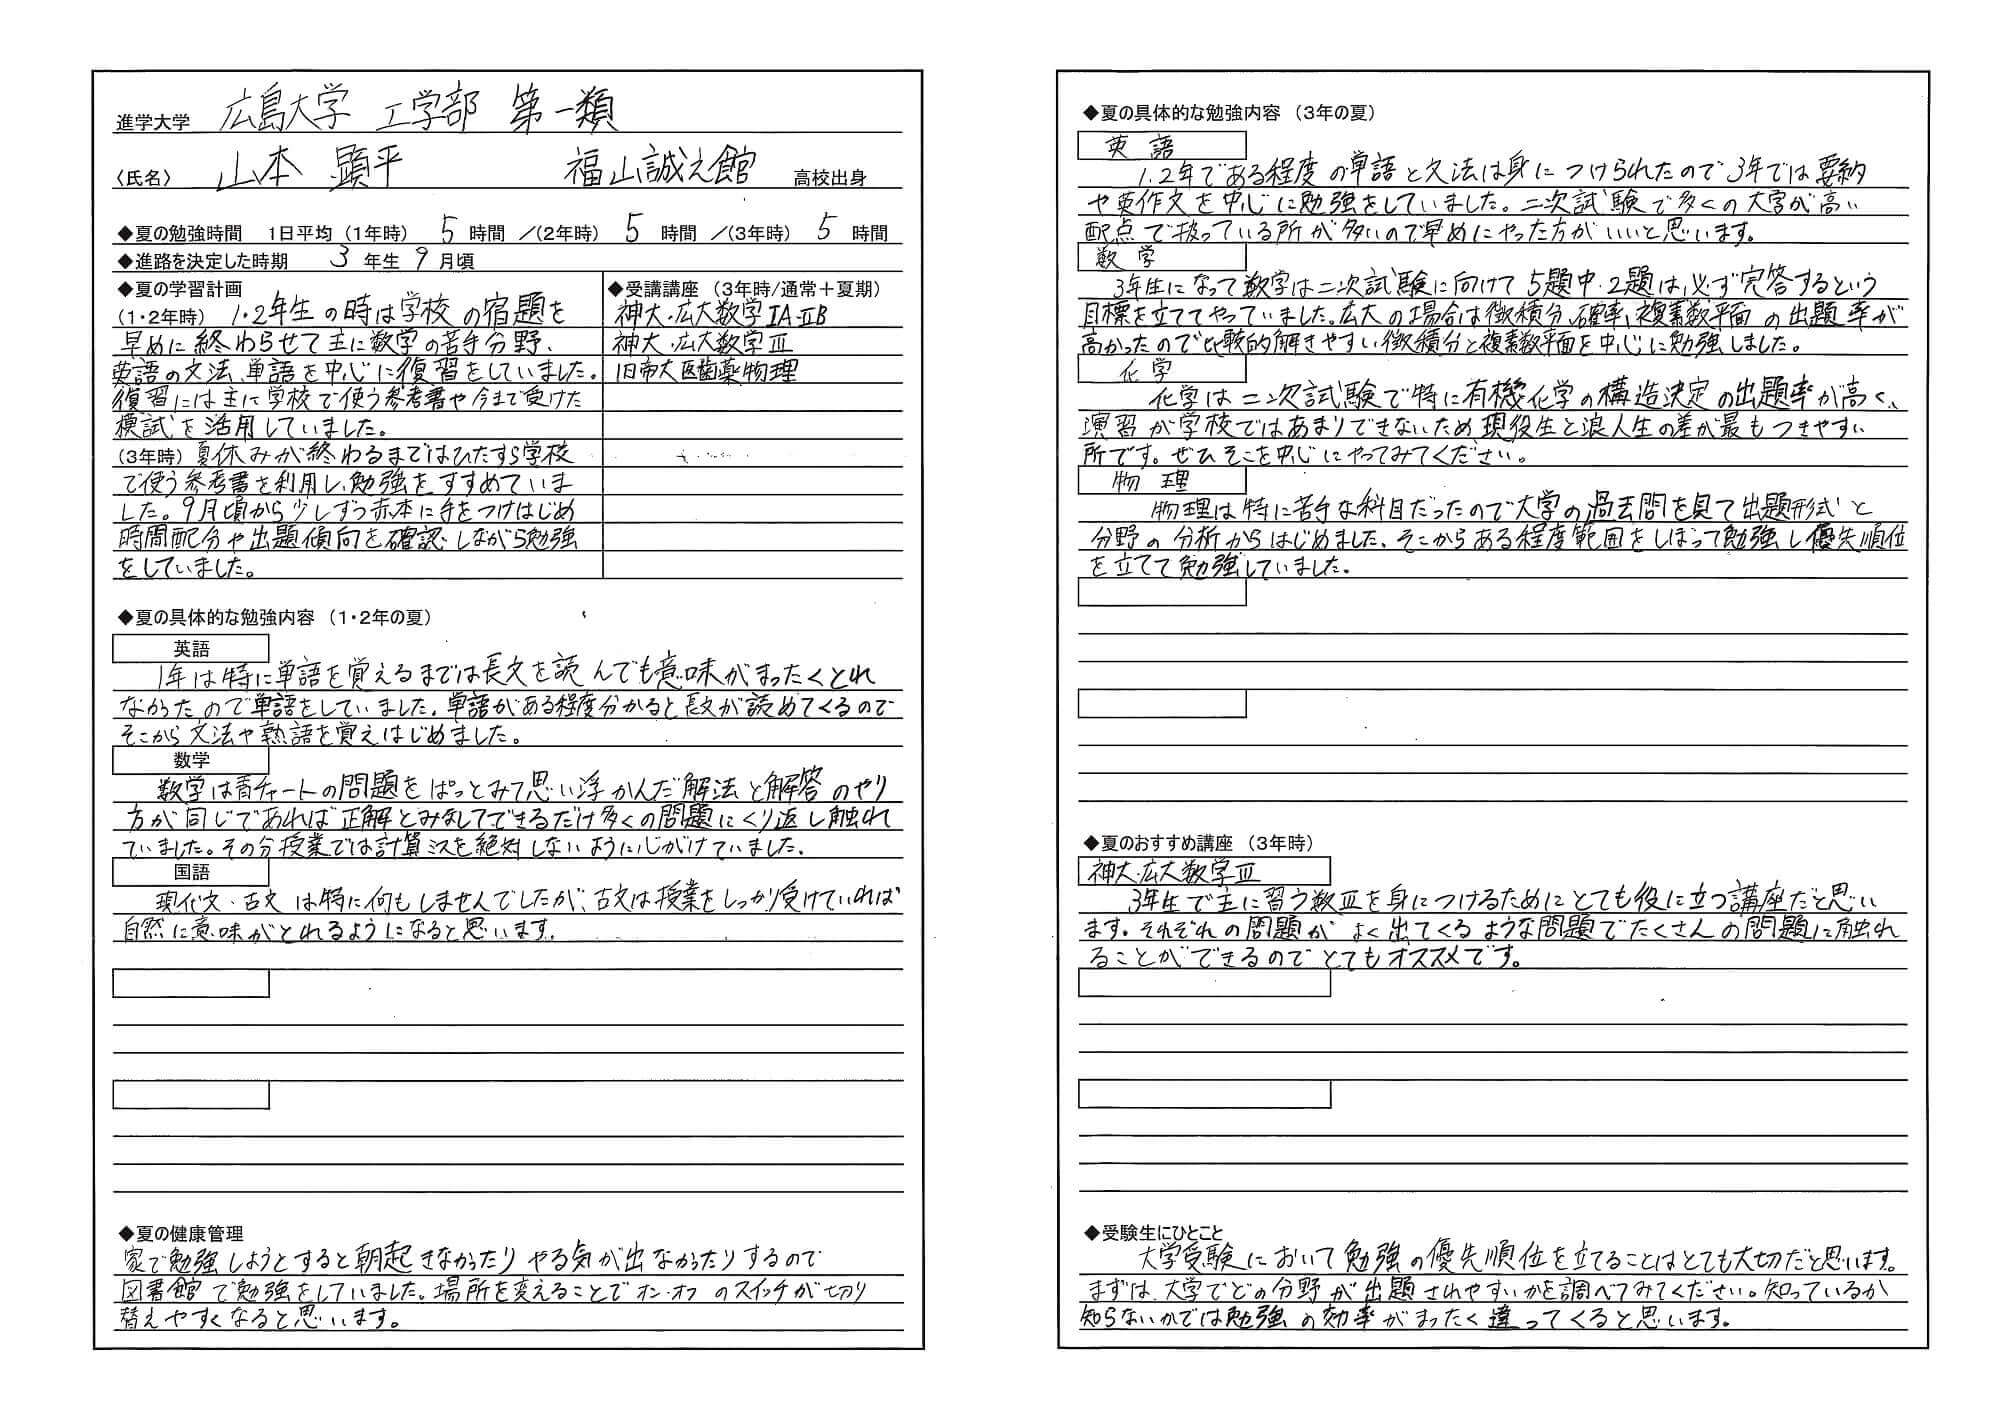 進学大学 広島大学 工学部 第一類
〈氏名〉 山本 顕平 福山誠之館 高校出身
◆夏の勉強時間 1日平均（1年時） 5 時間 ／（2年時） 5 時間 ／（3年時） 5 時間
◆進路を決定した時期 3 年生 9 月頃
◆夏の学習計画
（1・2年時） 1・2年生の時は学校の宿題を
早めに終わらせて主に数学の苦手分野、
英語の文法、単語を中心に復習をしていました。
復習には主に学校で使う参考書や今まで受けた
模試を活用していました。
（3年時） 夏休みが終わるまではひたすら学校
で使う参考書を利用し、勉強をすすめていま
した。9月頃から少しずつ赤本に手をつけはじめ
時間配分や出題傾向を確認しながら勉強
をしていました。
◆受講講座（3年時/通常＋夏期）
神大・広大数学ⅠA・ⅡB
神大・広大数学Ⅲ
旧帝大医歯薬物理
◆夏の具体的な勉強内容（1・2年の夏）
英語
1年は特に単語を覚えるまでは長文を読んでも意味がまったくとれ
なかったので単語をしていました。単語がある程度分かると長文が読めてくるので
そこから文法や熟語を覚えはじめました。
数学
数学は青チャートの問題をぱっとみて思い浮かんだ解法と解答のやり
方が同じであれば正解とみなしてできるだけ多くの問題にくり返し触れ
ていました。その分授業では計算ミスを絶対しないように心がけていました。
国語
現代文・古文は特に何もしませんでしたが、古文は授業をしっかり受けていれば
自然に意味がとれるようになると思います。
◆夏の健康管理
家で勉強しようとすると朝起きなかったりやる気が出なかったりするので
図書館で勉強をしていました。場所を変えることでオン・オフのスイッチが切り
替えやすくなると思います。
◆夏の具体的な勉強内容（3年の夏）
英語
1.2年である程度の単語と文法は身につけられたので3年では要約
や英作文を中心に勉強をしていました。二次試験で多くの大学が高い
配点で扱っている所が多いので早めにやった方がいいと思います。
数学
3年生になって数学は二次試験に向けて5題中2題は必ず完答するという
目標を立ててやっていました。広大の場合は微積分、確率、複素数平面の出題率が
高かったので比較的解きやすい微積分と複素数平面を中心に勉強しました。
化学
化学は二次試験で特に有機化学の構造決定の出題率が高く、
演習が学校ではあまりできないため現役生と浪人生の差が最もつきやすい
所です。ぜひそこを中心にやってみてください。
物理
物理は特に苦手な科目だったので大学の過去問を見て出題形式と
分野の分析からはじめました。そこからある程度範囲をしぼって勉強し優先順位
を立てて勉強していました。
◆夏のおすすめ講座（3年時）
神大・広大数学Ⅲ
3年生で主に習う数Ⅲを身につけるためにとても役に立つ講座だと思い
ます。それぞれの問題がよく出てくるような問題でたくさんの問題に触れ
ることができるのでとてもオススメです。
◆受験生にひとこと
大学受験において勉強の優先順位を立てることはとても大切だと思います。
まずは、大学でどの分野が出題されやすいかを調べてみてください。知っているか
知らないかでは勉強の効率がまったく違ってくると思います。